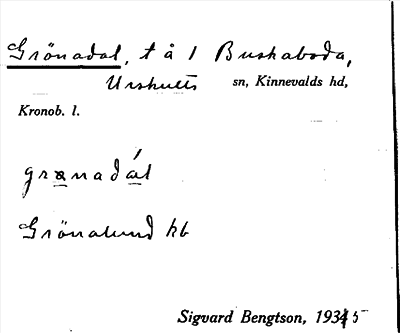 Grönadal, t å 1 Buskaboda,
Urshults sn, Kinnevalds hd,
Kronob. l.
grønadál
Grönalund hb
Sigvard Bengtson, 1935